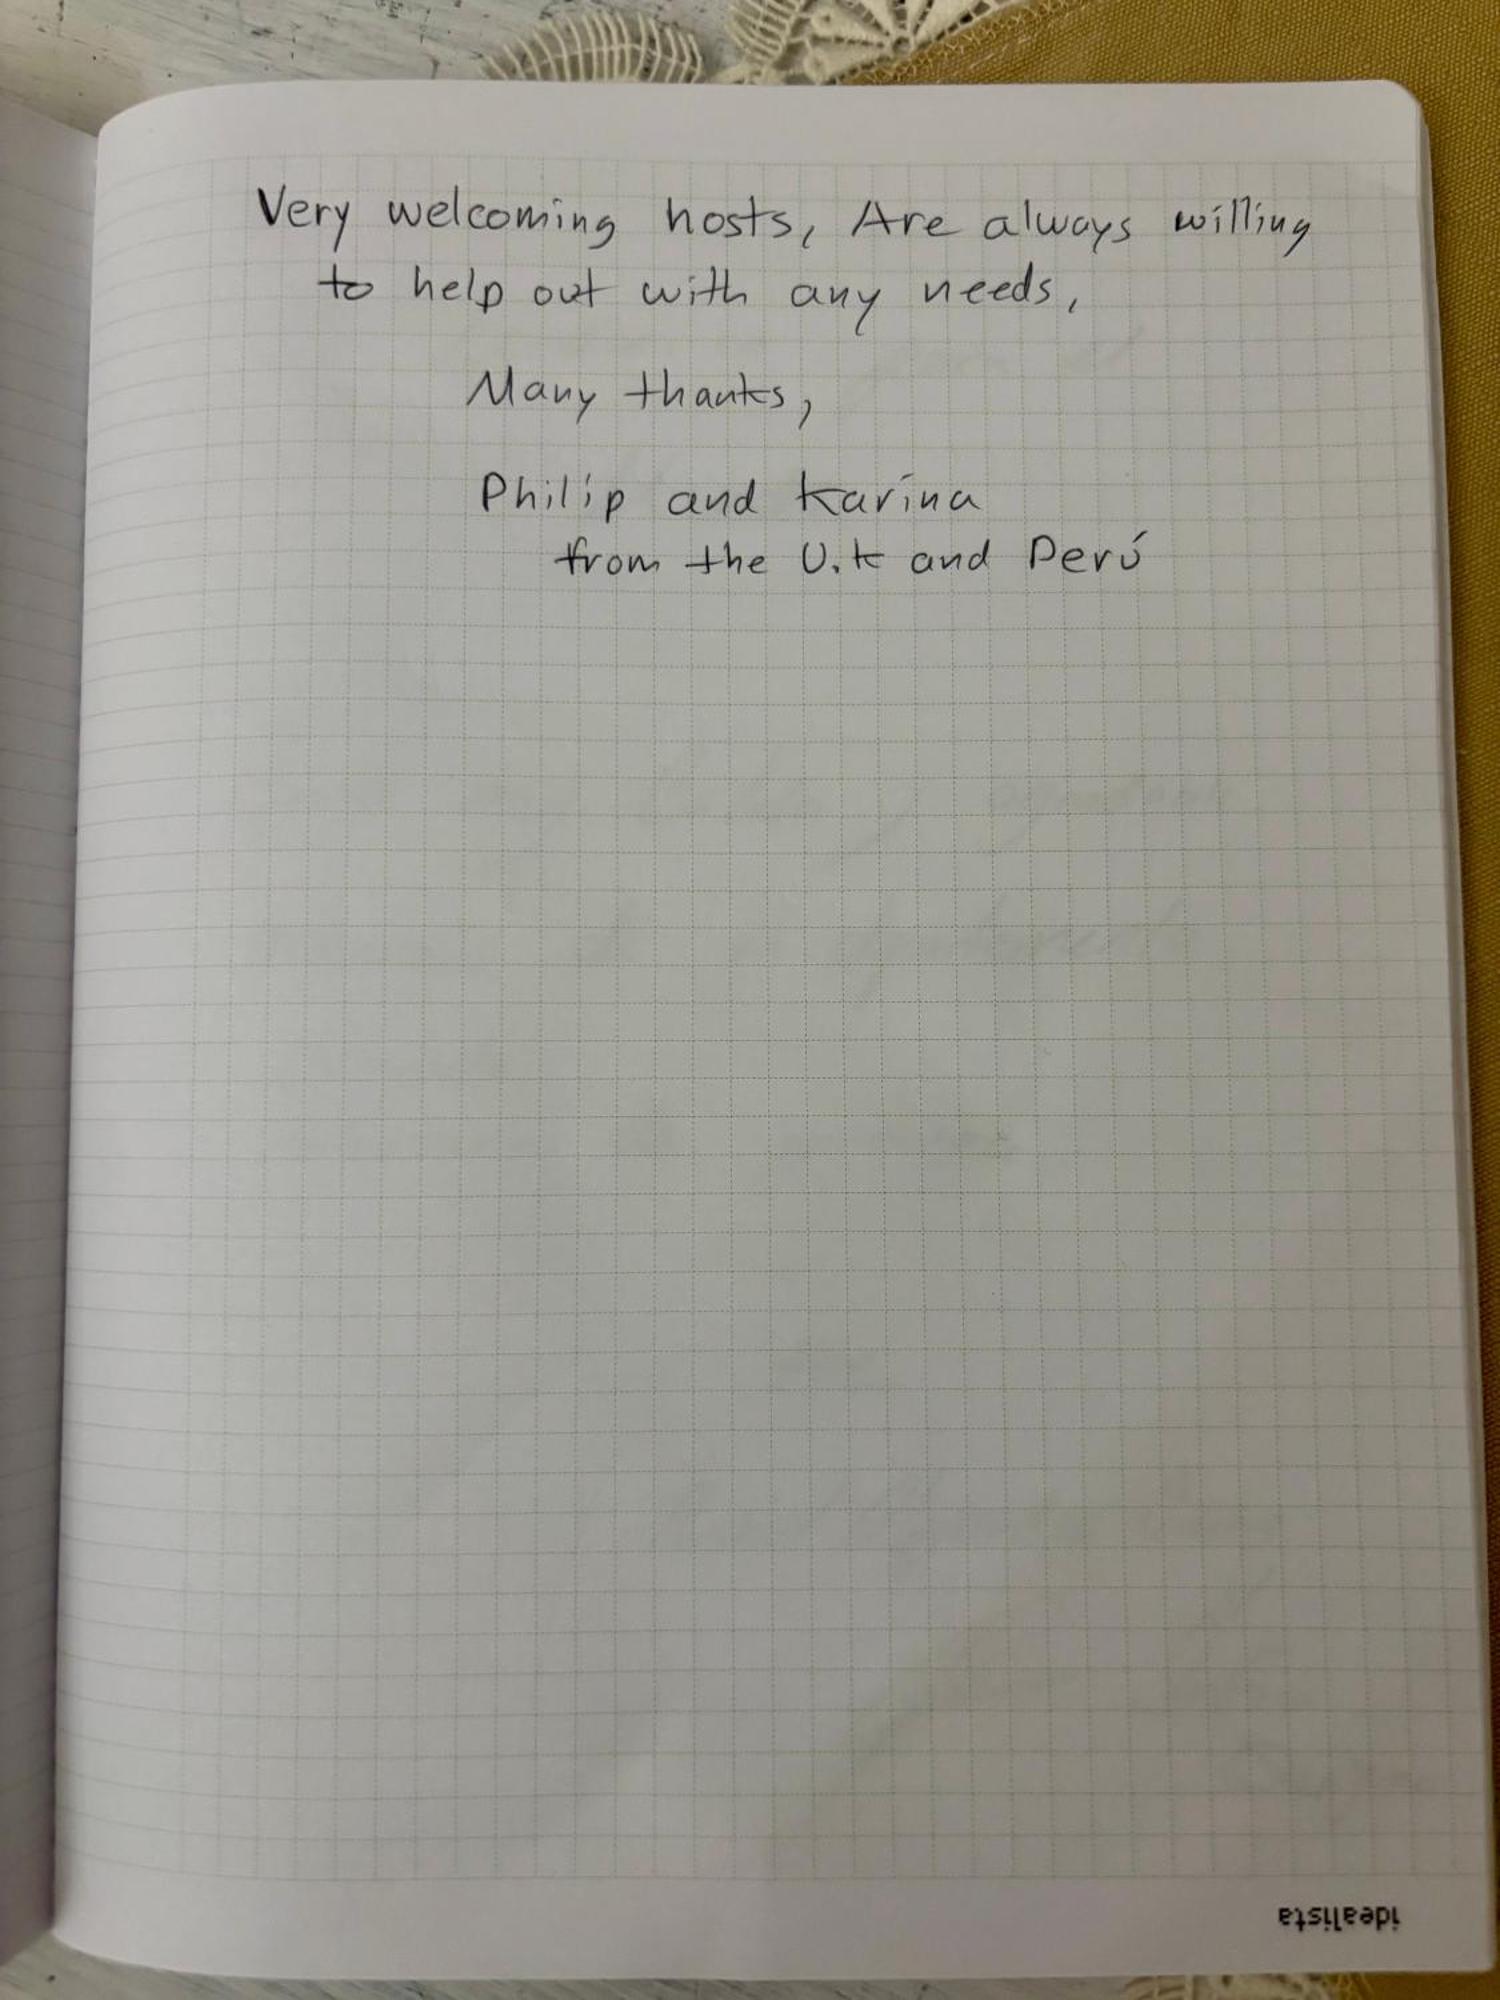 Very welcoming hosts, Are always willing
to help out with any needs,
Many thanks,
Philip and Karina
from the U.K and Perú
idealista